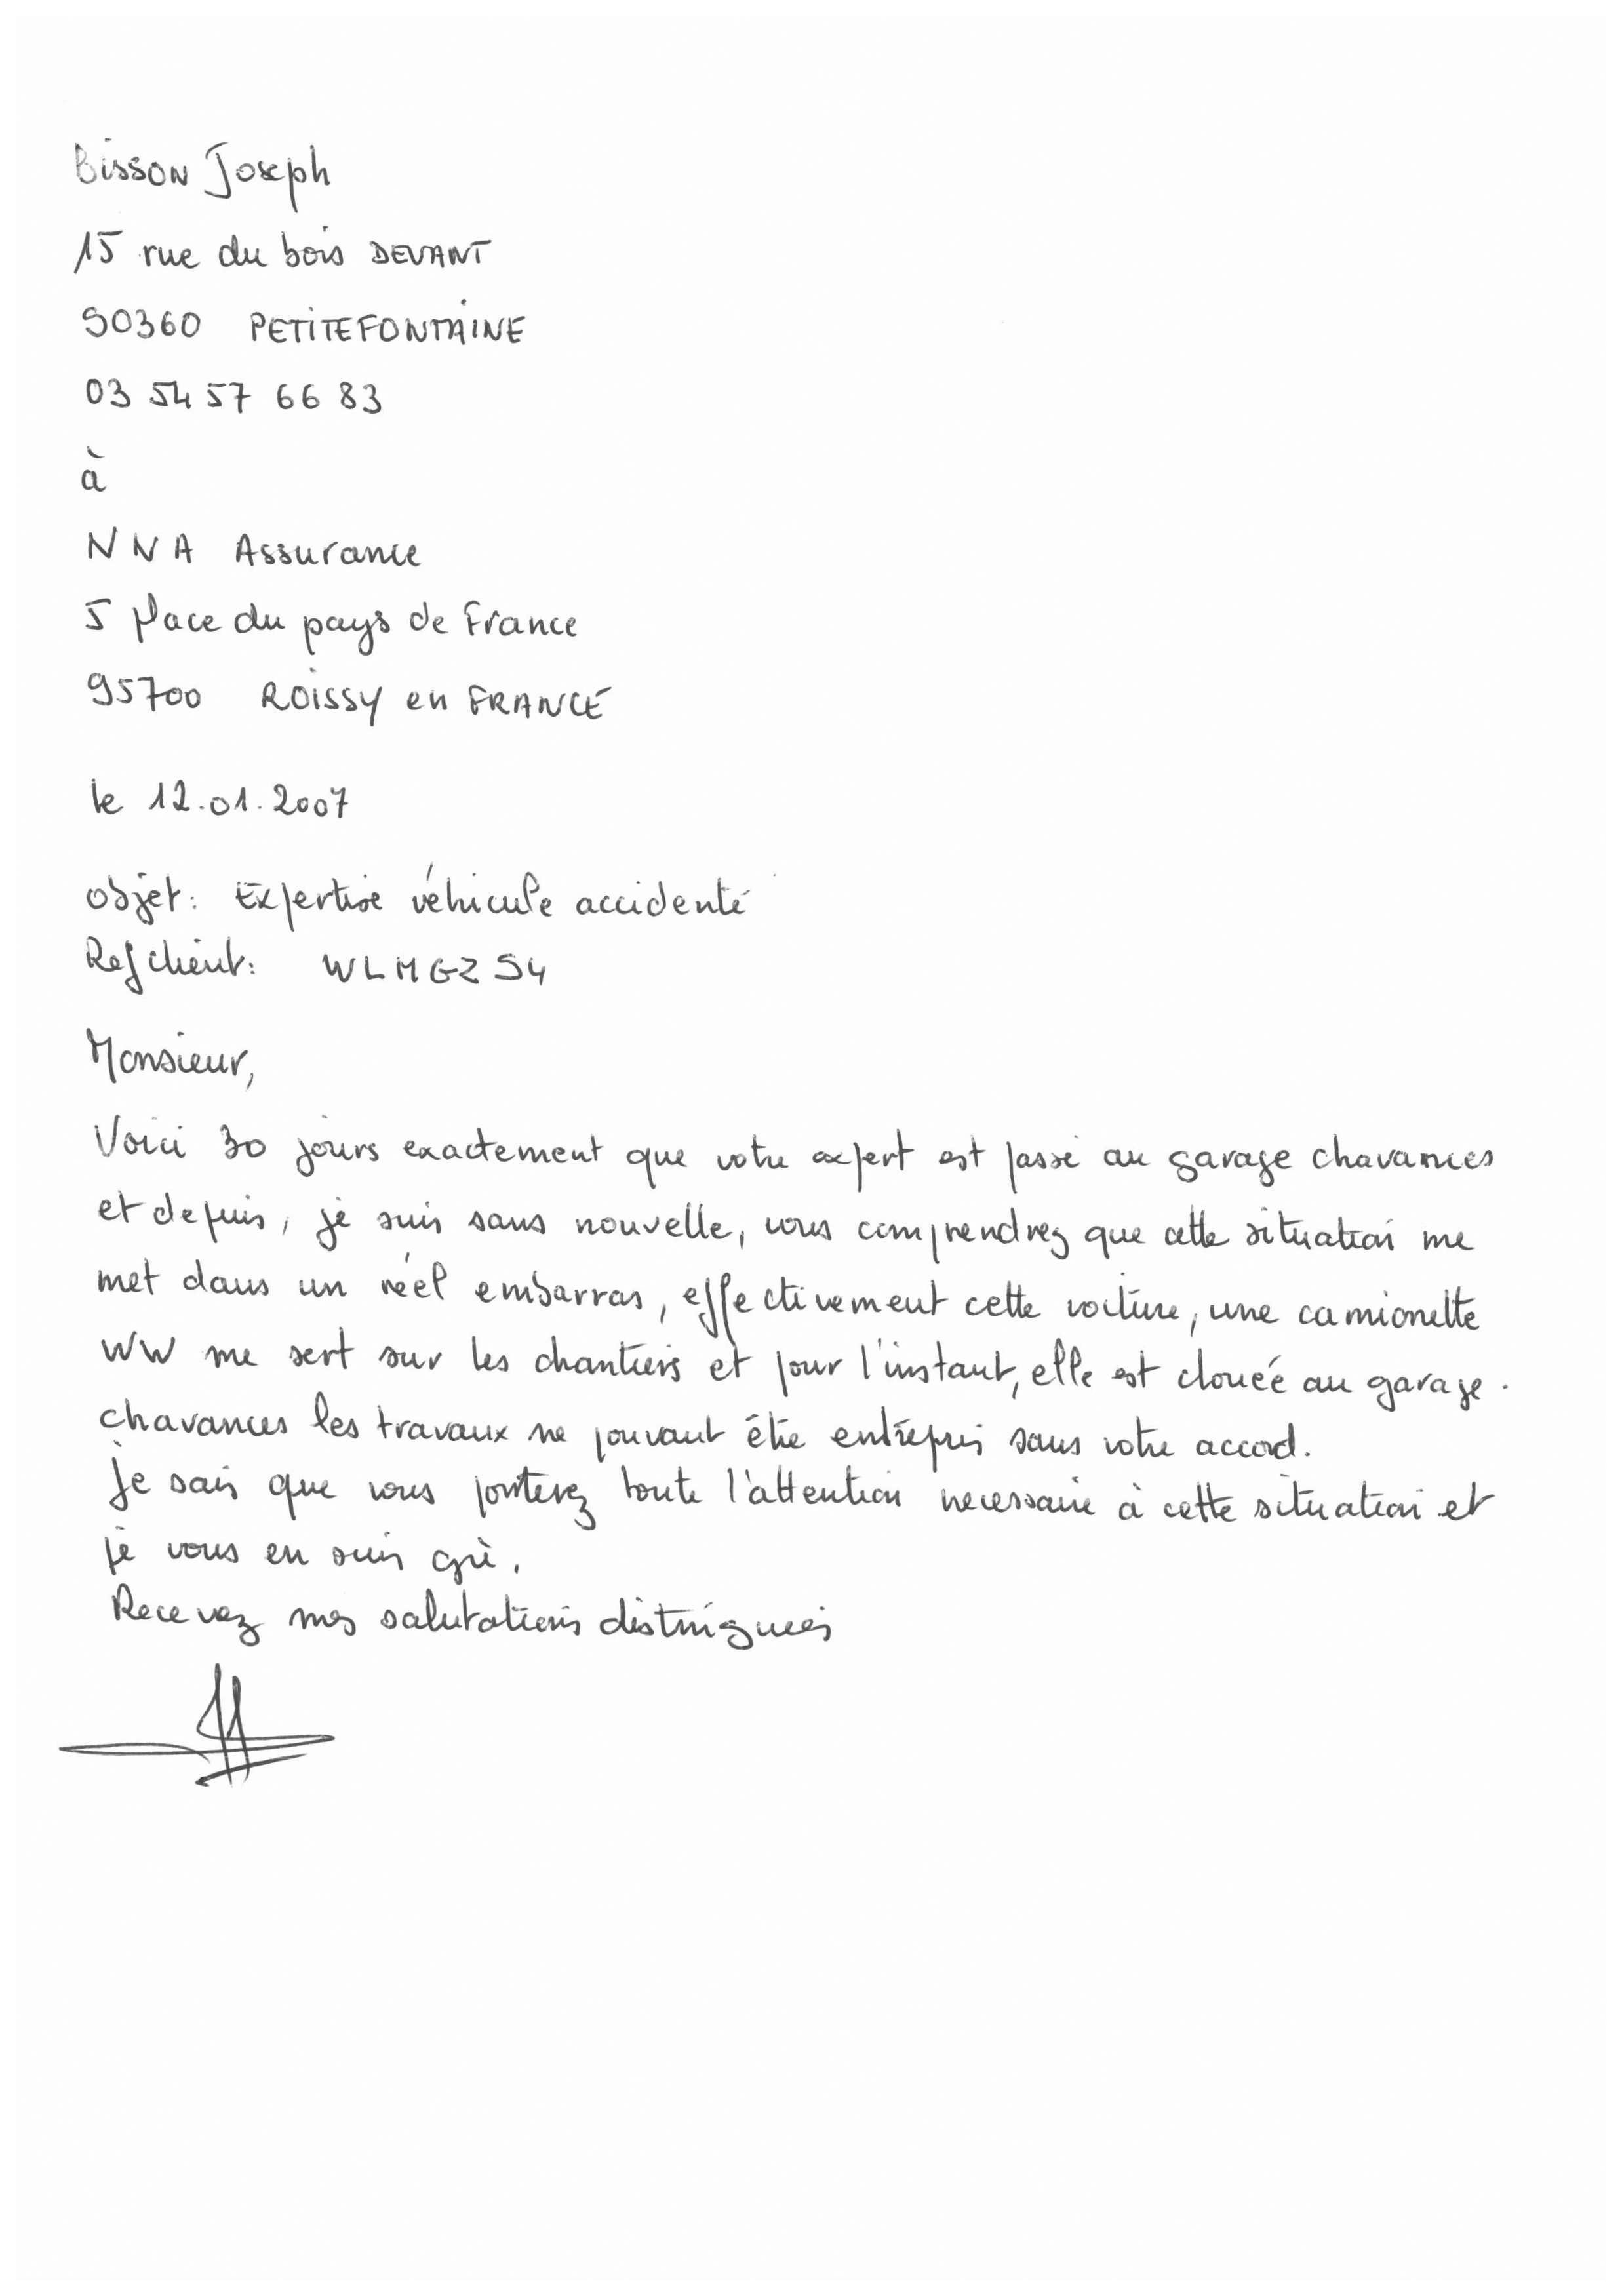 Bisson Joseph
15 rue du bois DEVANT
90360 PETITEFONTAINE
03 54 57 66 83
à
NNA Assurance
5 place du pays de France
95700 ROISSY en FRANCE
le 12.01.2007
objet: Expertise véhicule accidenté
Ref client: WLMGZ94
Monsieur,
Voici 30 jours exactement que votre expert est passé au garage chavannes
et depuis, je suis sans nouvelle, vous comprendrez que cette situation me
met dans un réel embarras, effectivement cette voiture, une camionette
WW me sert sur les chantiers et pour l'instant, elle est clouée au garage.
chavannes les travaux ne pouvant être entrepris sans votre accord.
Je sais que vous porterez toute l'attention necessaire à cette situation et
je vous en suis gré.
Recevez mes salutations distinguées